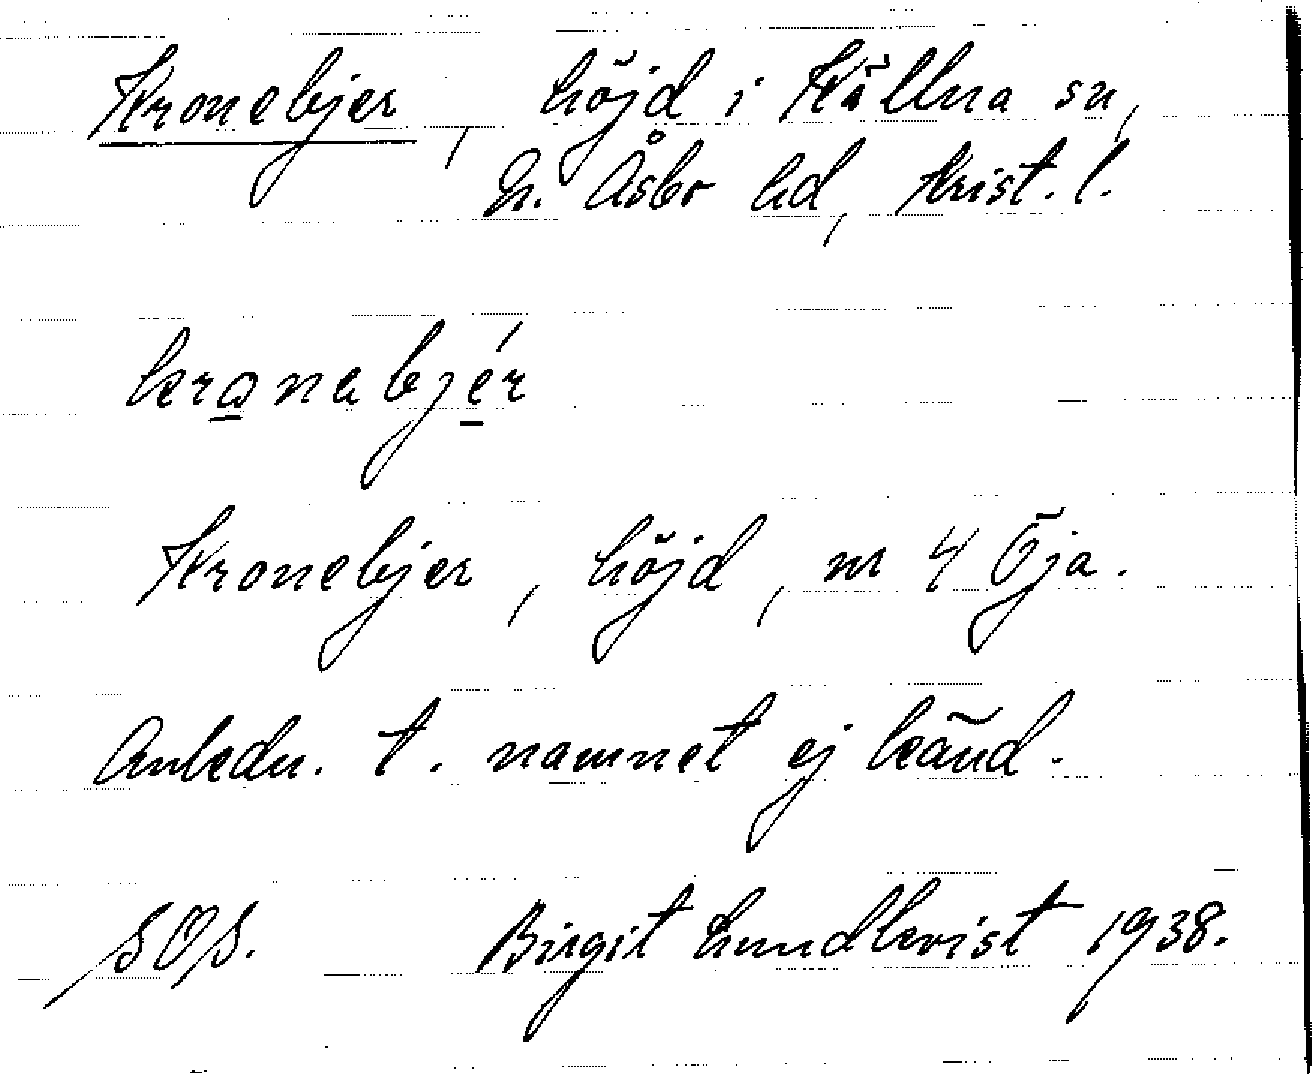 Kronebjer, höjd i Källna sn,
N. Åsbo hd, Krist. l.
kronabjér
Kronebjer, höjd, nr 4 Öja.
Anledn. t. namnet ej känd.
SOS. Birgit Lundkvist 1938.